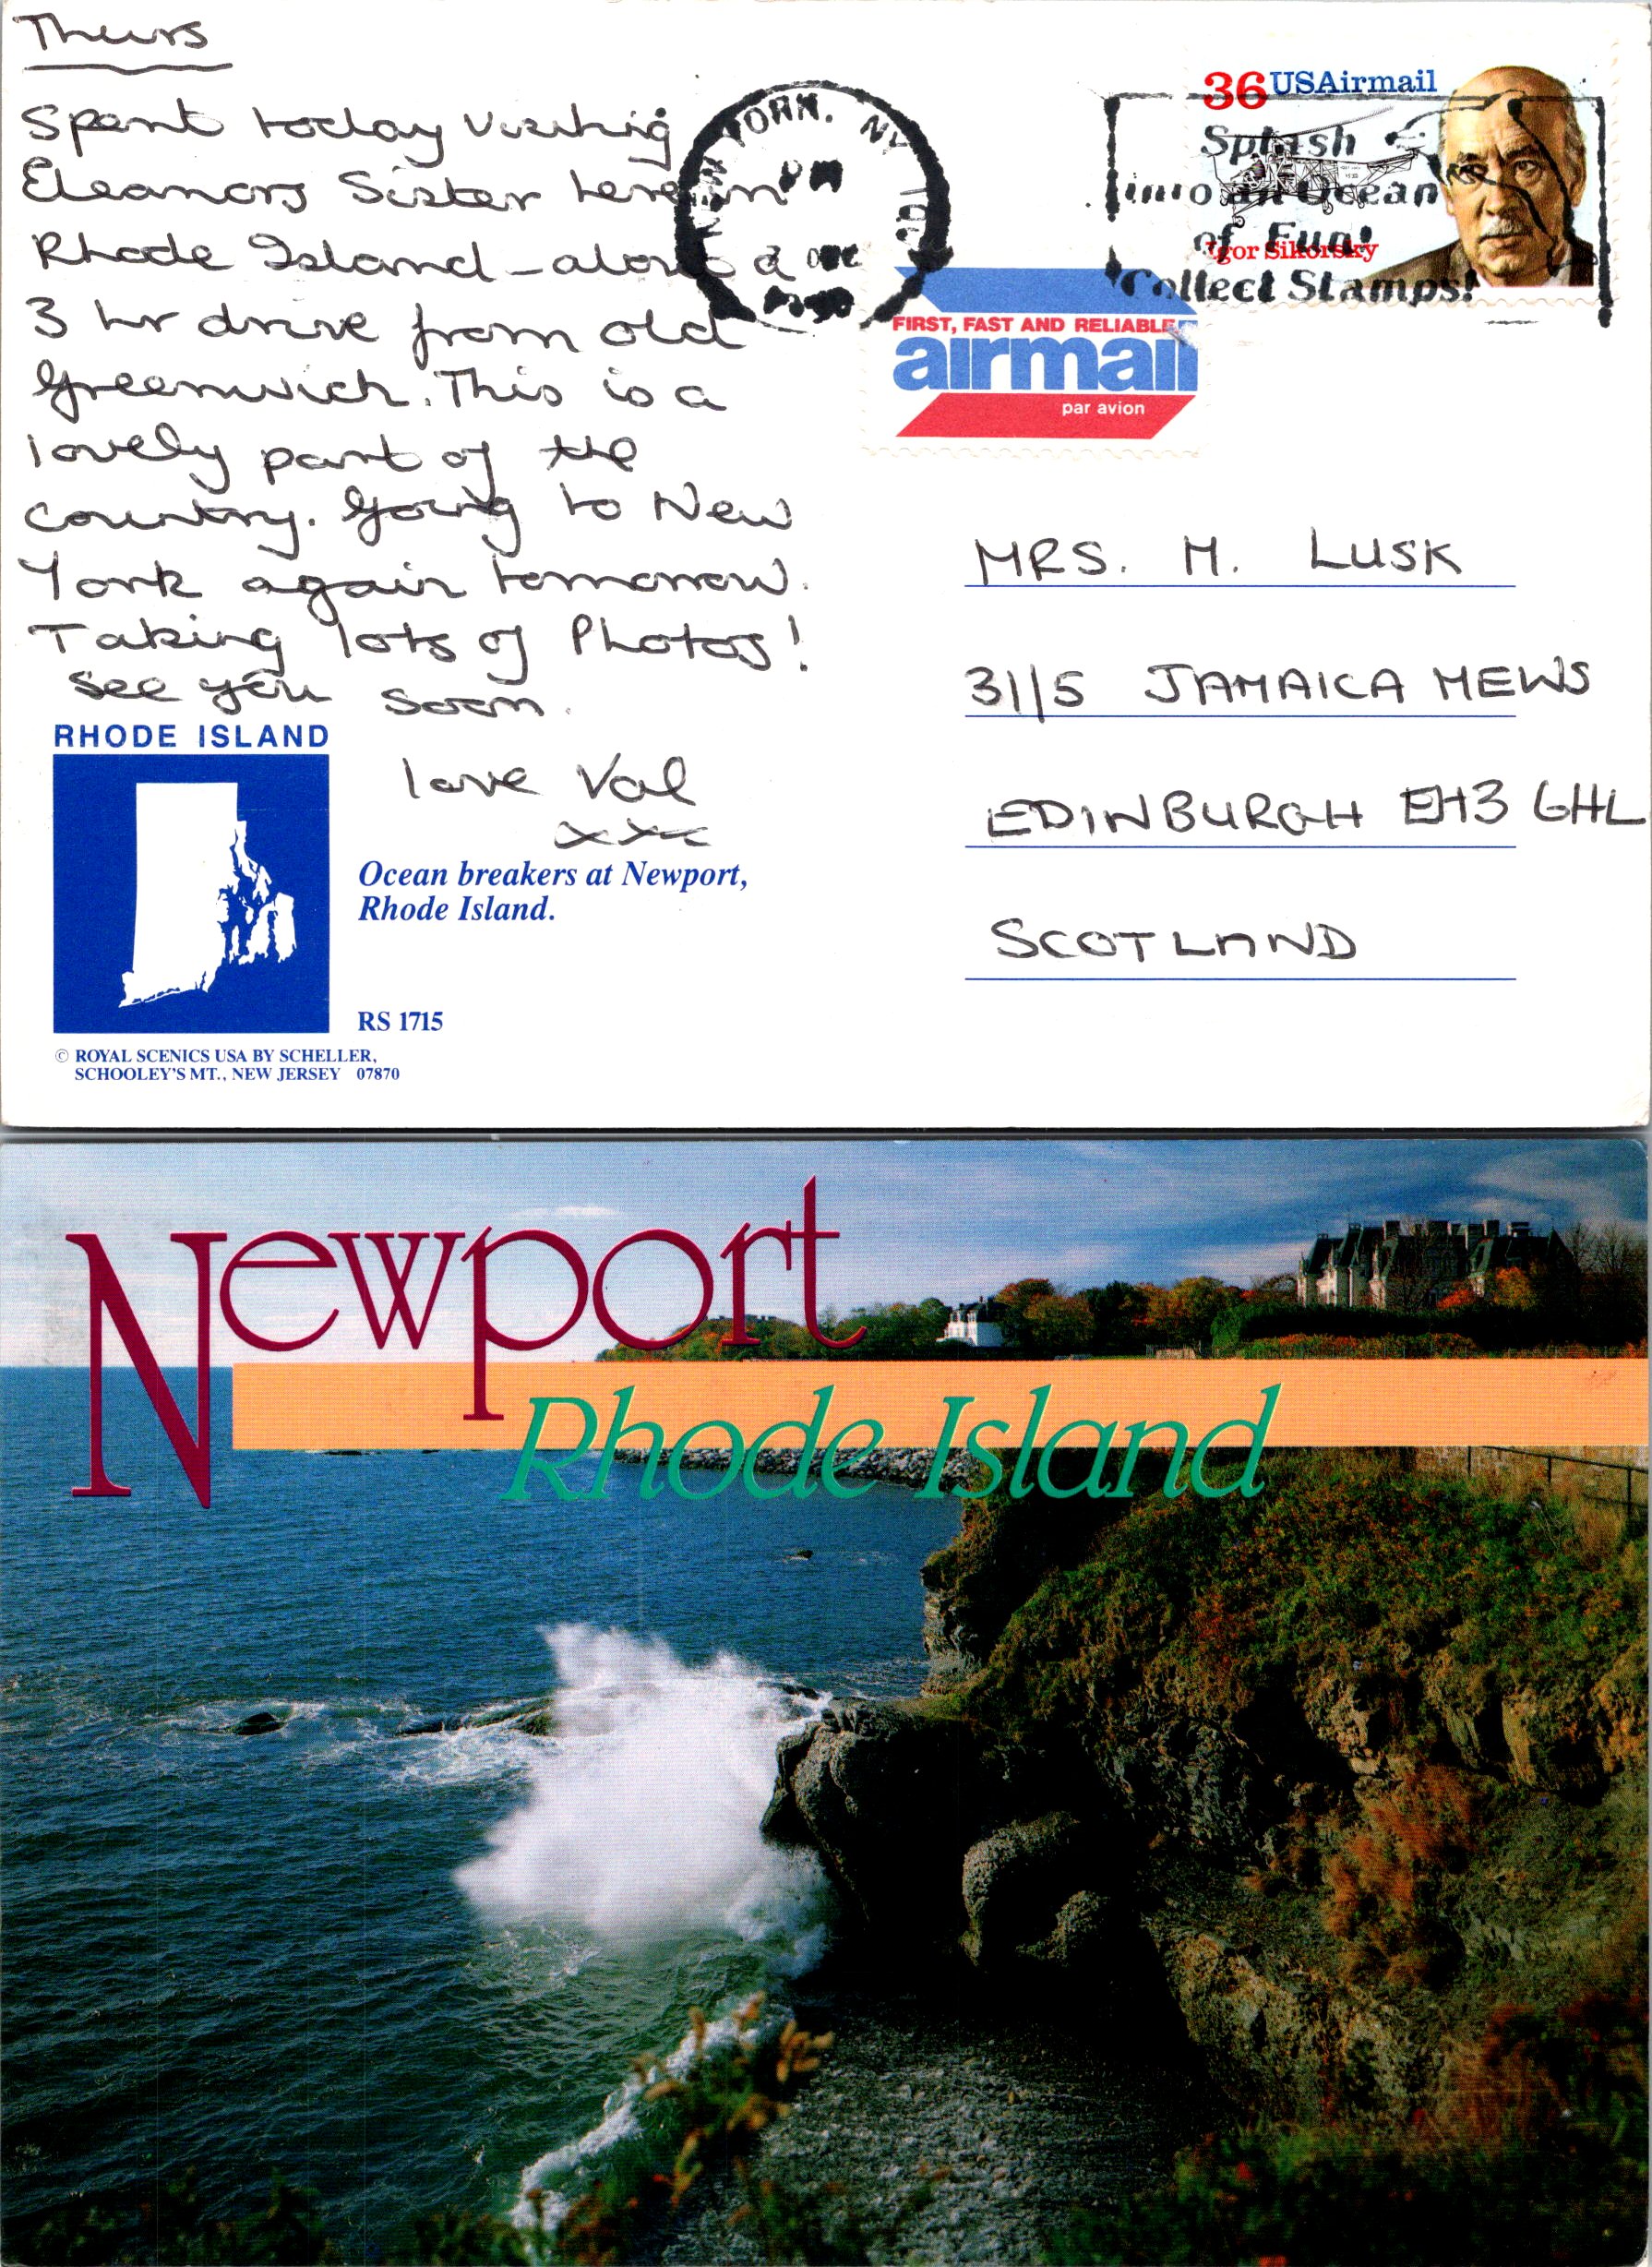 Thurs
Spent today visiting
Eleanors Sister here in
Rhode Island - about a
3 hr drive from old
Greenwich. This is a
lovely part of the
country. Going to New
York again tomorrow.
Taking lots of Photos!
See you soon.
love Val
xxx
YORK, NY
PM
2
36 USAirmail
Igor Sikorsky
Splash
into an Ocean
of Fun!
Collect Stamps!
FIRST, FAST AND RELIABLE
airmail
par avion
MRS. M. LUSK
31/5 JAMAICA MEWS
EDINBURGH EH3 6HL
SCOTLAND
RHODE ISLAND
Ocean breakers at Newport,
Rhode Island.
RS 1715
© ROYAL SCENICS USA BY SCHELLER,
SCHOOLEY'S MT., NEW JERSEY 07870
Newport
Rhode Island